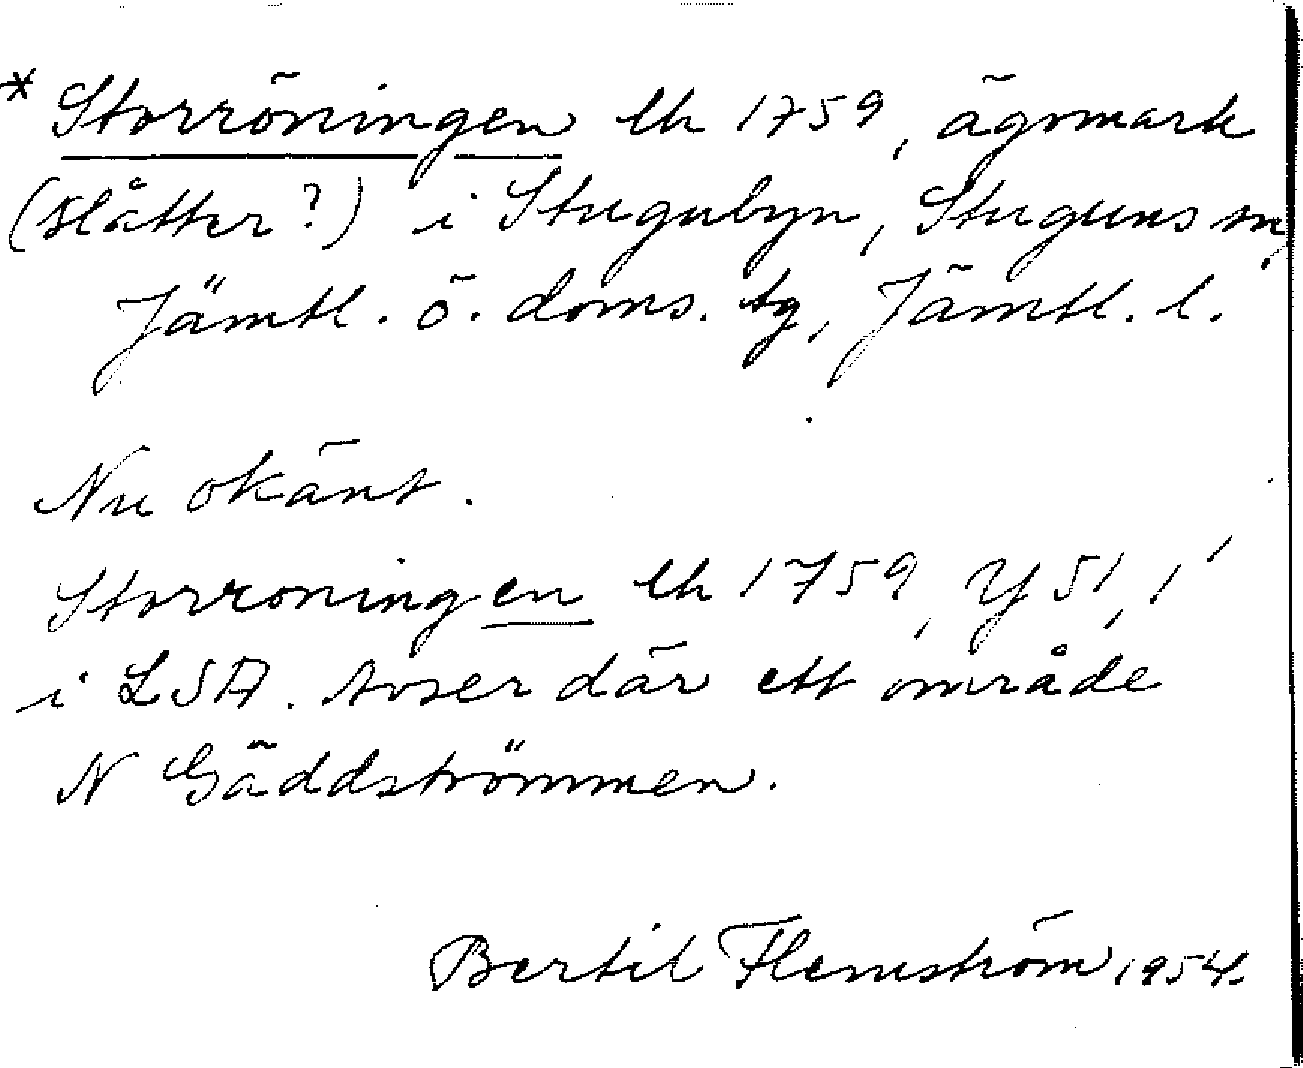 * Storröningen lh 1759, ägomark
(slåtter?) i Stugubyn, Stuguns sn,
Jämtl. ö. doms. tg, Jämtl. l.
Nu okänt.
Storroningen lh 1759, Y 51, 1
i LSA. Avser där ett område
N Gäddströmmen.
Bertil Flemström 1954.